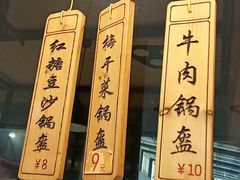 红糖豆沙锅盔
¥8
梅干菜锅盔
9元
牛肉锅盔
¥10